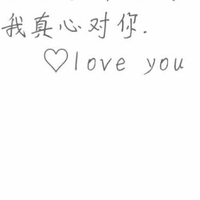 我真心对你.
♡love you